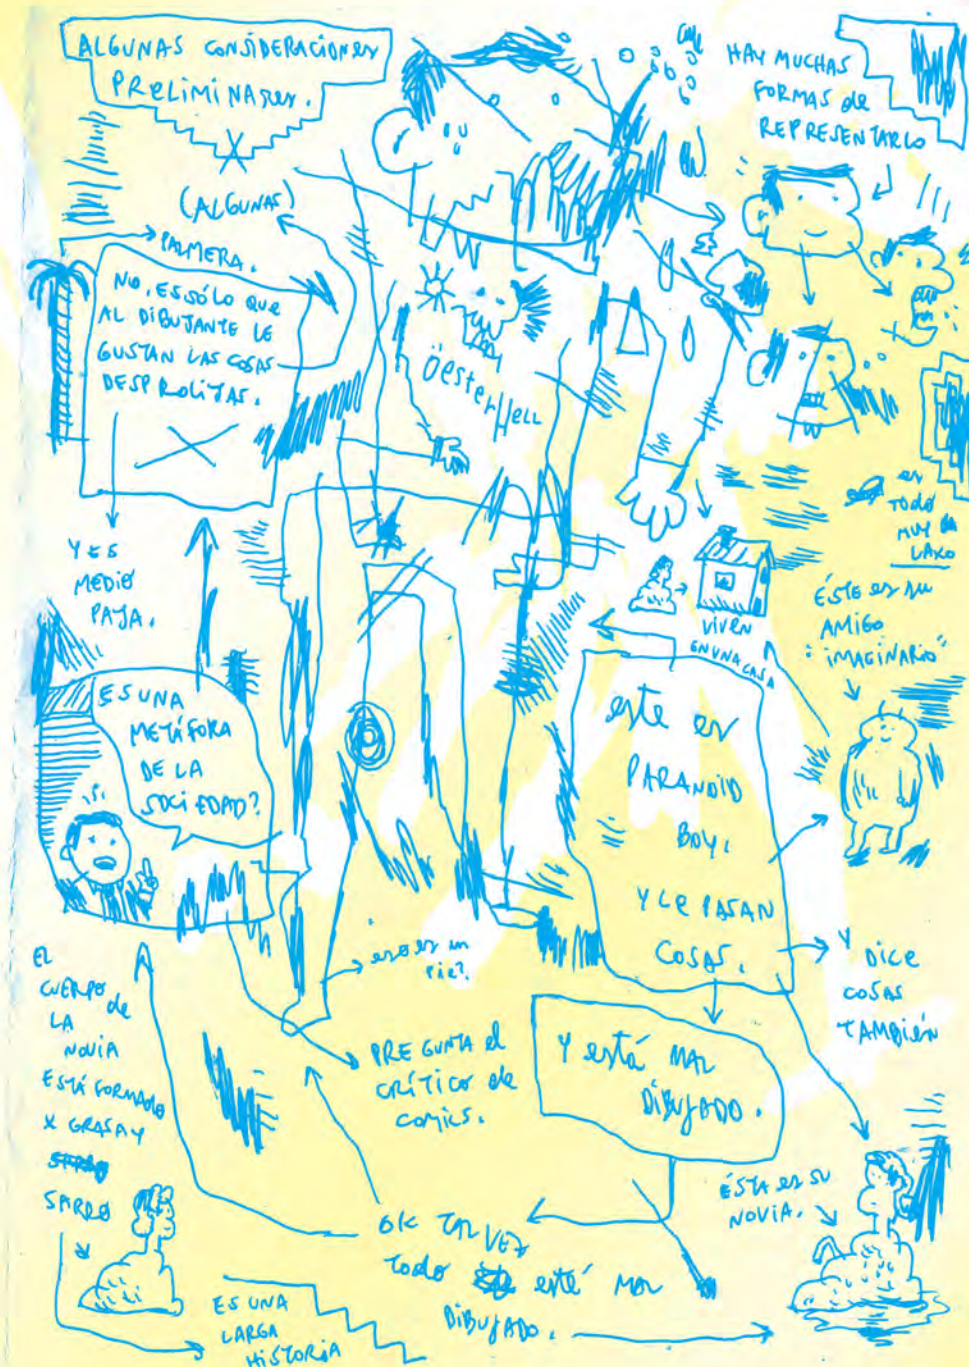 ALGUNAS CONSIDERACIONES
PRELIMINARES.
HAY MUCHAS
FORMAS de
REPRESENTARLO
(ALGUNAS)
PALMERA.
NO, ES SÓLO QUE
AL DIBUJANTE LE
GUSTAN LAS COSAS
DESPROLIJAS.
ÖesterHeLL
es
TODO
MUY
LAXO
Y ES
MEDIO
PAJA.
VIVEN
EN UNA CASA
ÉSTE es su
AMIGO
"IMAGINARIO"
ES UNA
METÁFORA
DE LA
SOCIEDAD?
este es
PARANOID
BOY.
Y Le PASAN
COSAS.
Y
DICE
COSAS
TAMBIÉN
eso es un
pie?
PREGUNTA el
CRÍTICO de
comics.
Y está MAL
DIBUJADO.
EL
CUERPO de
LA
NOVIA
ESTÁ FORMADO
X GRASA Y
SARRO
ÉSTA es su
NOVIA.
OK TAL VEZ
Todo esté MAL
DIBUJADO.
ES UNA
LARGA
HISTORIA